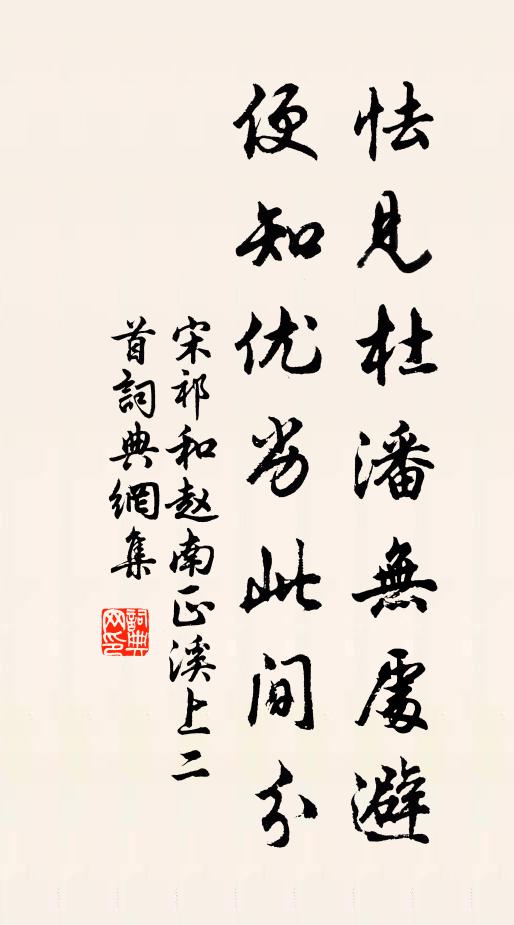 怯見杜潘無處避
便知优劣此間分
宋祁和赵南正溪上二
首詞典網集
詞典网印